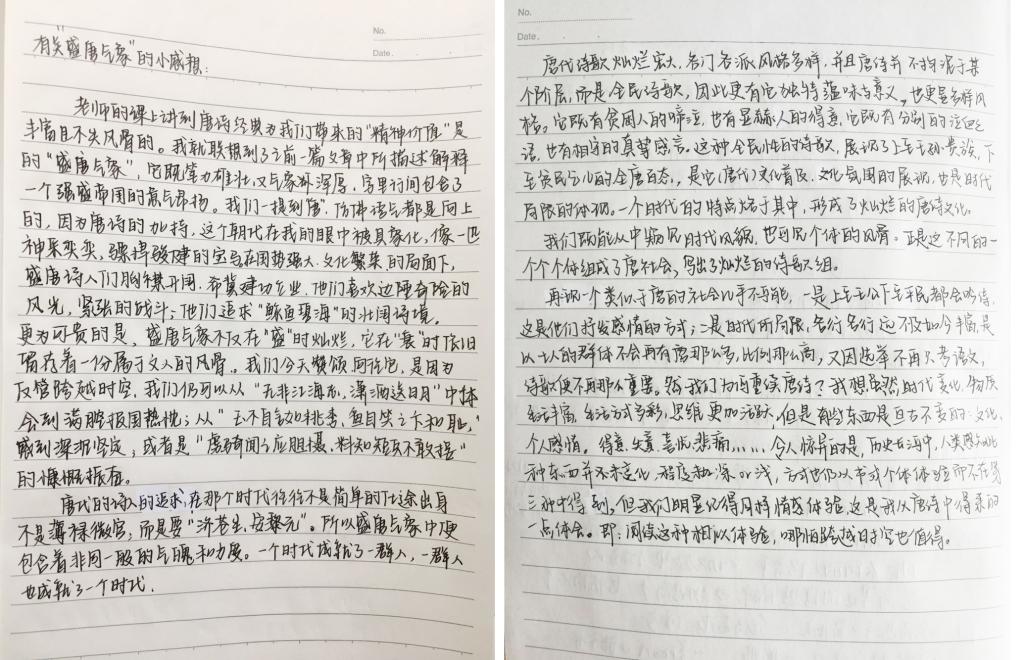 No.
Date.
有关“盛唐气象”的小感想:
老师的课上讲到唐诗经典为我们带来的“精神价值”是
丰富且不失风骨的。我就联想到了之前一篇文章中所描述解释
的“盛唐气象”,它既笔力雄壮,又气象浑深厚,字里行间包含了
一个强盛帝国的意气昂扬。我们一提到“唐”,仿佛语气都是向上
的,因为唐诗的加持,这个朝代在我的眼中被具象化,像一匹
神采奕奕,骠捍骏健的宝马在国势强大、文化繁荣的局面下,
盛唐诗人们胸襟开阔,希冀建功立业,他们喜欢边陲奇险的
风光,紧张的战斗;他们追求“鲸鱼碧海”的壮阔诗境。
更为可贵的是,盛唐气象不仅在“盛”时灿烂,它在“衰”时依旧
留存着一份属于文人的风骨。我们今天赞颂
反管跨越时空,我们仍可以从“无非江海志,潇洒送日月”中体
会到满腔报国热忱;从“玉不自言如桃李,鱼目笑之卞和耻,”
感到深沉坚定,或者是“虏骑闻之应胆慑,料知短兵不敢接”
的慷慨振奋。
唐代的诗人的追求,在那个时代往往不是简单的仕途出身
不是薄禄微官,而是要“济苍生,安黎元”。所以盛唐气象中便
包含着非同一般的气魄和力度。一个时代成就了一群人,一群人
也成就了一个时代.
No.
Date.
唐代诗歌灿烂宏大,各门各派风格多样,并且唐诗并不拘泥于某
个阶层,而是全民诗歌,因此更有它独特蕴味与意义,也更显多样风
格。它既有贫困人的啼泣,也有显赫人的得意,它既有分别的
语,也有相守的真挚感言。这种全民性的诗歌,展现了上至王孙贵族,下
至贫民乞儿的全唐百态,是它(唐代)文化普及、文化氛围的展现,也是时代
局限的体现。一个时代的特点熔于其中,形成了灿烂的唐诗文化。
我们既能从中窥见时代风貌,也可见个体的风骨。正是这不同的一
个个个体组成了唐社会,写出了灿烂的诗歌组。
再现一个类似于唐的社会几乎不可能,一是上至王公下至平民都会吟诗,
这是他们抒发感情的方式;二是时代所局限,各行各行远不及如今丰富,是
以士人的群体不会再有唐那么多,比例那么高,又因选举不再只考语文,
诗歌便不用那么重要。然我们为何要续唐诗?我想虽然时代变化,物质
生活丰富,生活方式多彩,思维更加活跃,但是有些东西是亘古不变的:文化、
个人感情。得意,失意,喜悦,悲痛……令人惊异的是,历史长河中,人类感知此
种东西并不未变化,程度和深or浅,方式也仍以书或个体体验而不在第
三种才得到,但我们明显记得同样情感体验,这是我从唐诗中得来的
一点体会。即:阅读这种相似体验,哪怕跨越时空也值得。